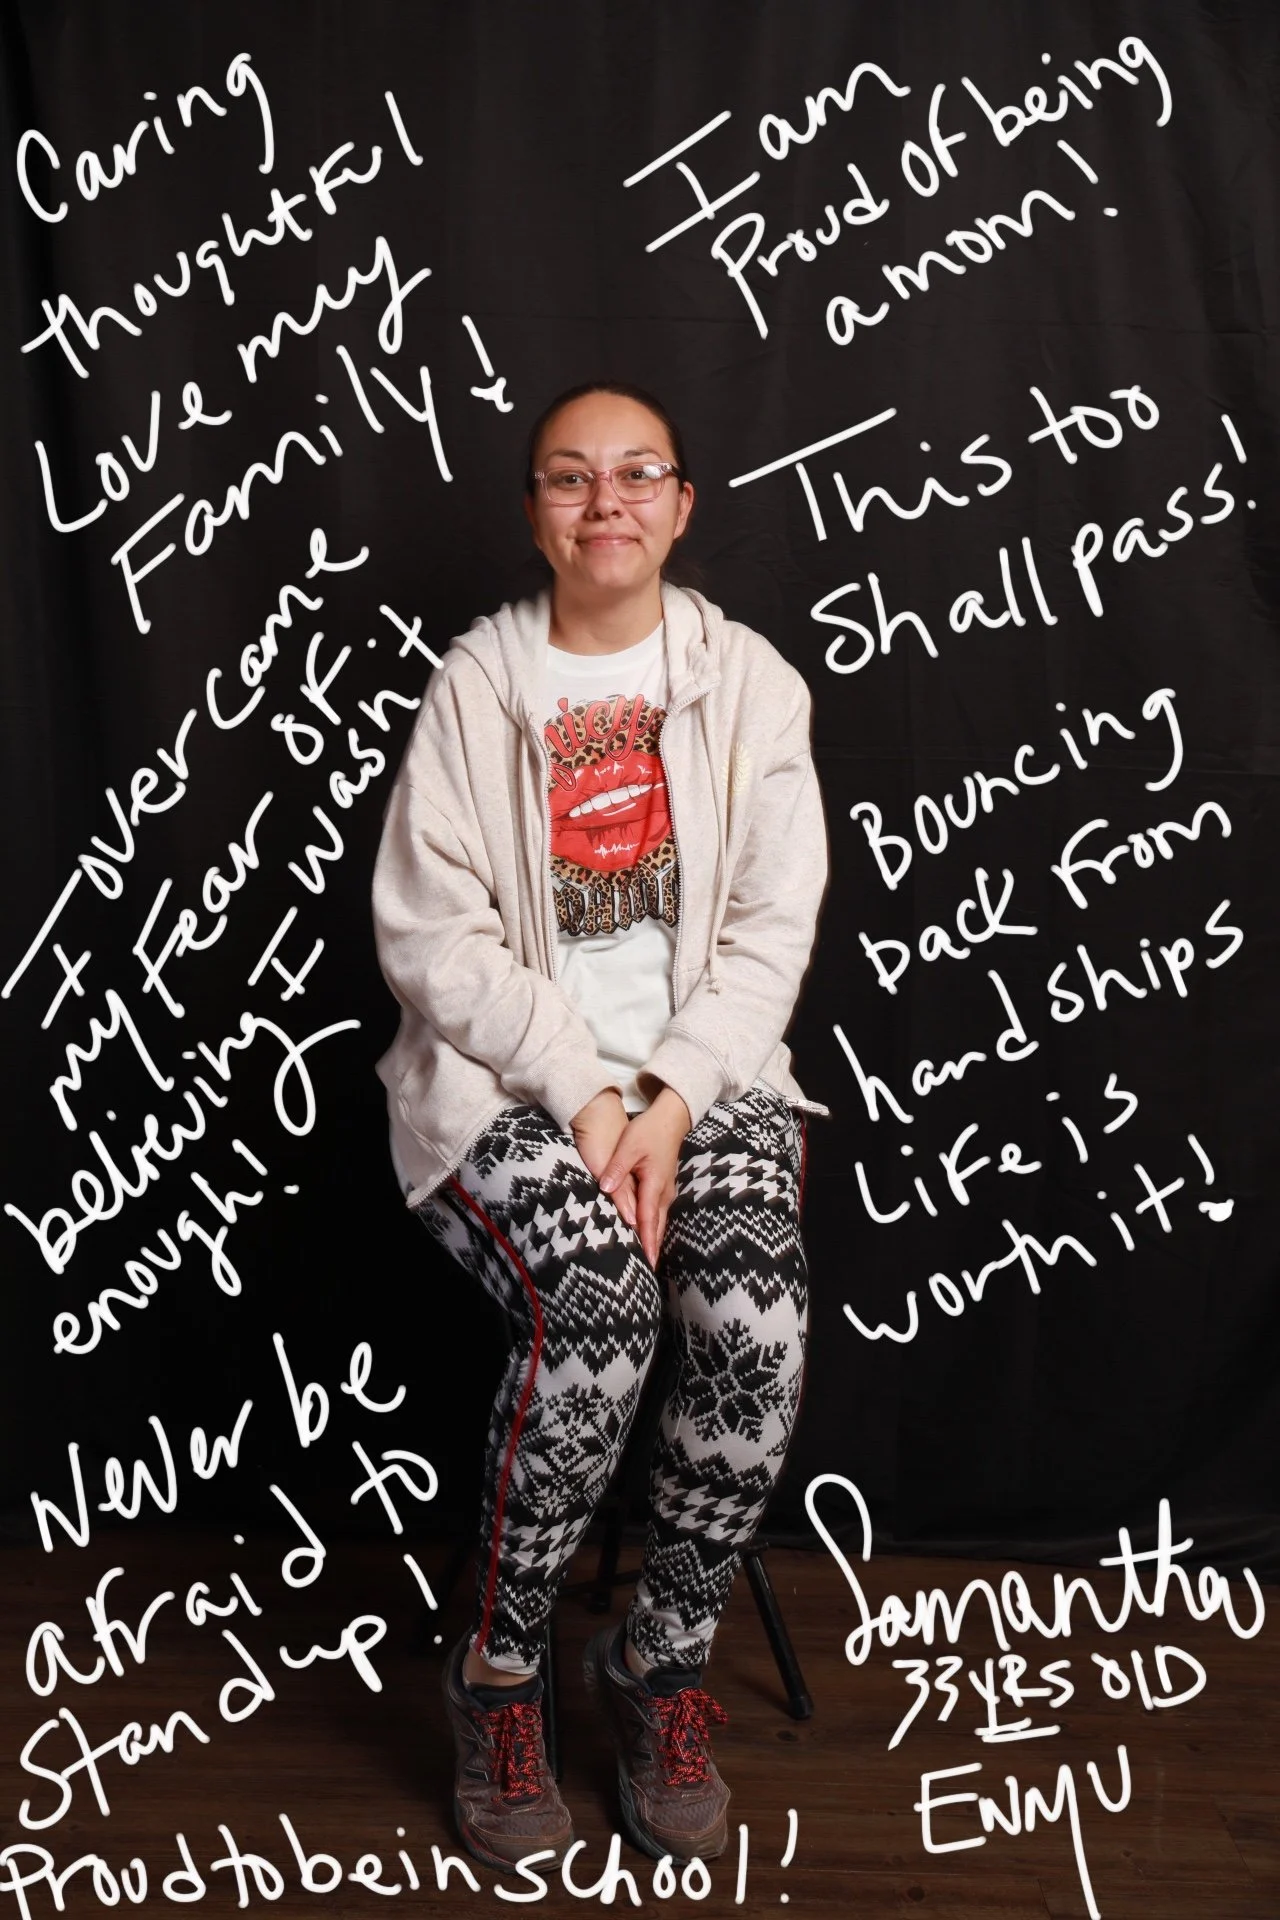 Caring
thoughtful
Love my
Family!
I overcame
my fear of
believing I wasn't
enough!
Never be
afraid to
Stand up!
Proud to be in school!
I am
Proud of being
a mom!
This too
shall pass!
Bouncing
back from
hardships
Life is
worth it!
Samantha
33 YRS OLD
ENMU
Juicy